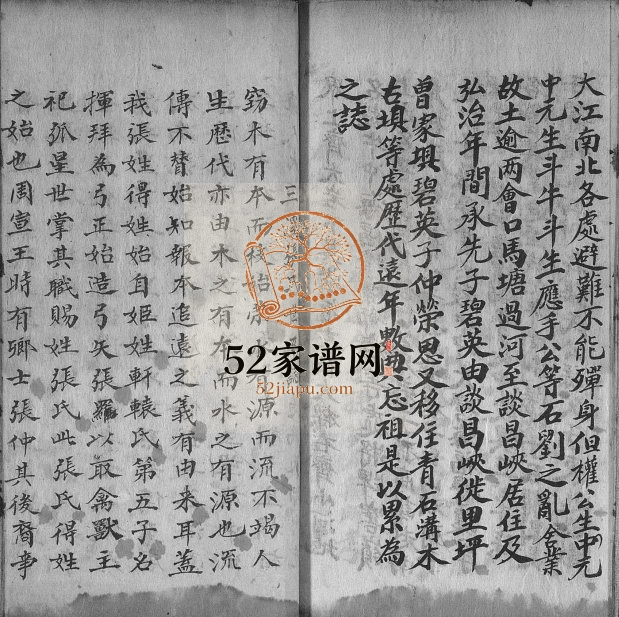 大江南北各處避難不能殫身但權公生中元
中元生斗牛斗生應手公等石劉之亂舍業
故土逾两會口馬塘過河至談昌峽居住及
弘治年間承先子碧英由談昌峽徙里坪
曾家垻碧英子仲榮恩又移住青石溝木
古垻等處歷代遠年數典忘祖是以累為
之誌
三
窃木有本而後始 源而流不竭人
生歷代亦由木之有本而水之有源也流
傳不替始知報本追遠之義有由来耳蓋
我張姓得姓始自姬姓軒轅氏第五子名
揮拜為弓正始造弓矢張羅以取禽獸主
祀弧星世掌其職賜姓張氏此張氏得姓
之始也周宣王時有卿士張仲其後裔事
52家谱网
52jiapu.com